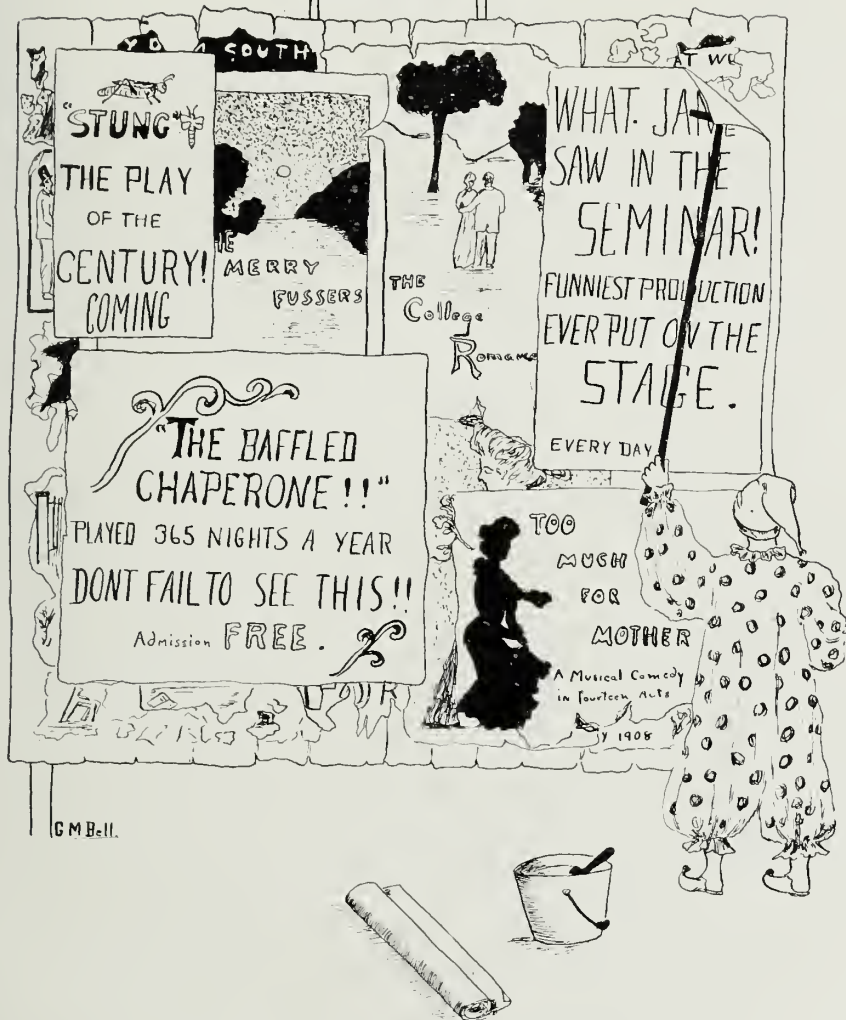 SOUTH
AT WE
"STUNG"
THE PLAY
OF THE
CENTURY!
COMING
THE
MERRY
FUSSERS
THE
College
Romance
WHAT. JANE
SAW IN THE
SEMINAR!
FUNNIEST PRODUCTION
EVER PUT ON THE
STAGE.
EVERY DAY
"THE BAFFLED
CHAPERONE!!"
PLAYED 365 NIGHTS A YEAR
DONT FAIL TO SEE THIS!!
Admission FREE.
TOO
MUCH
FOR
MOTHER
A Musical Comedy
in fourteen Acts
Y 1908
G M Bell.